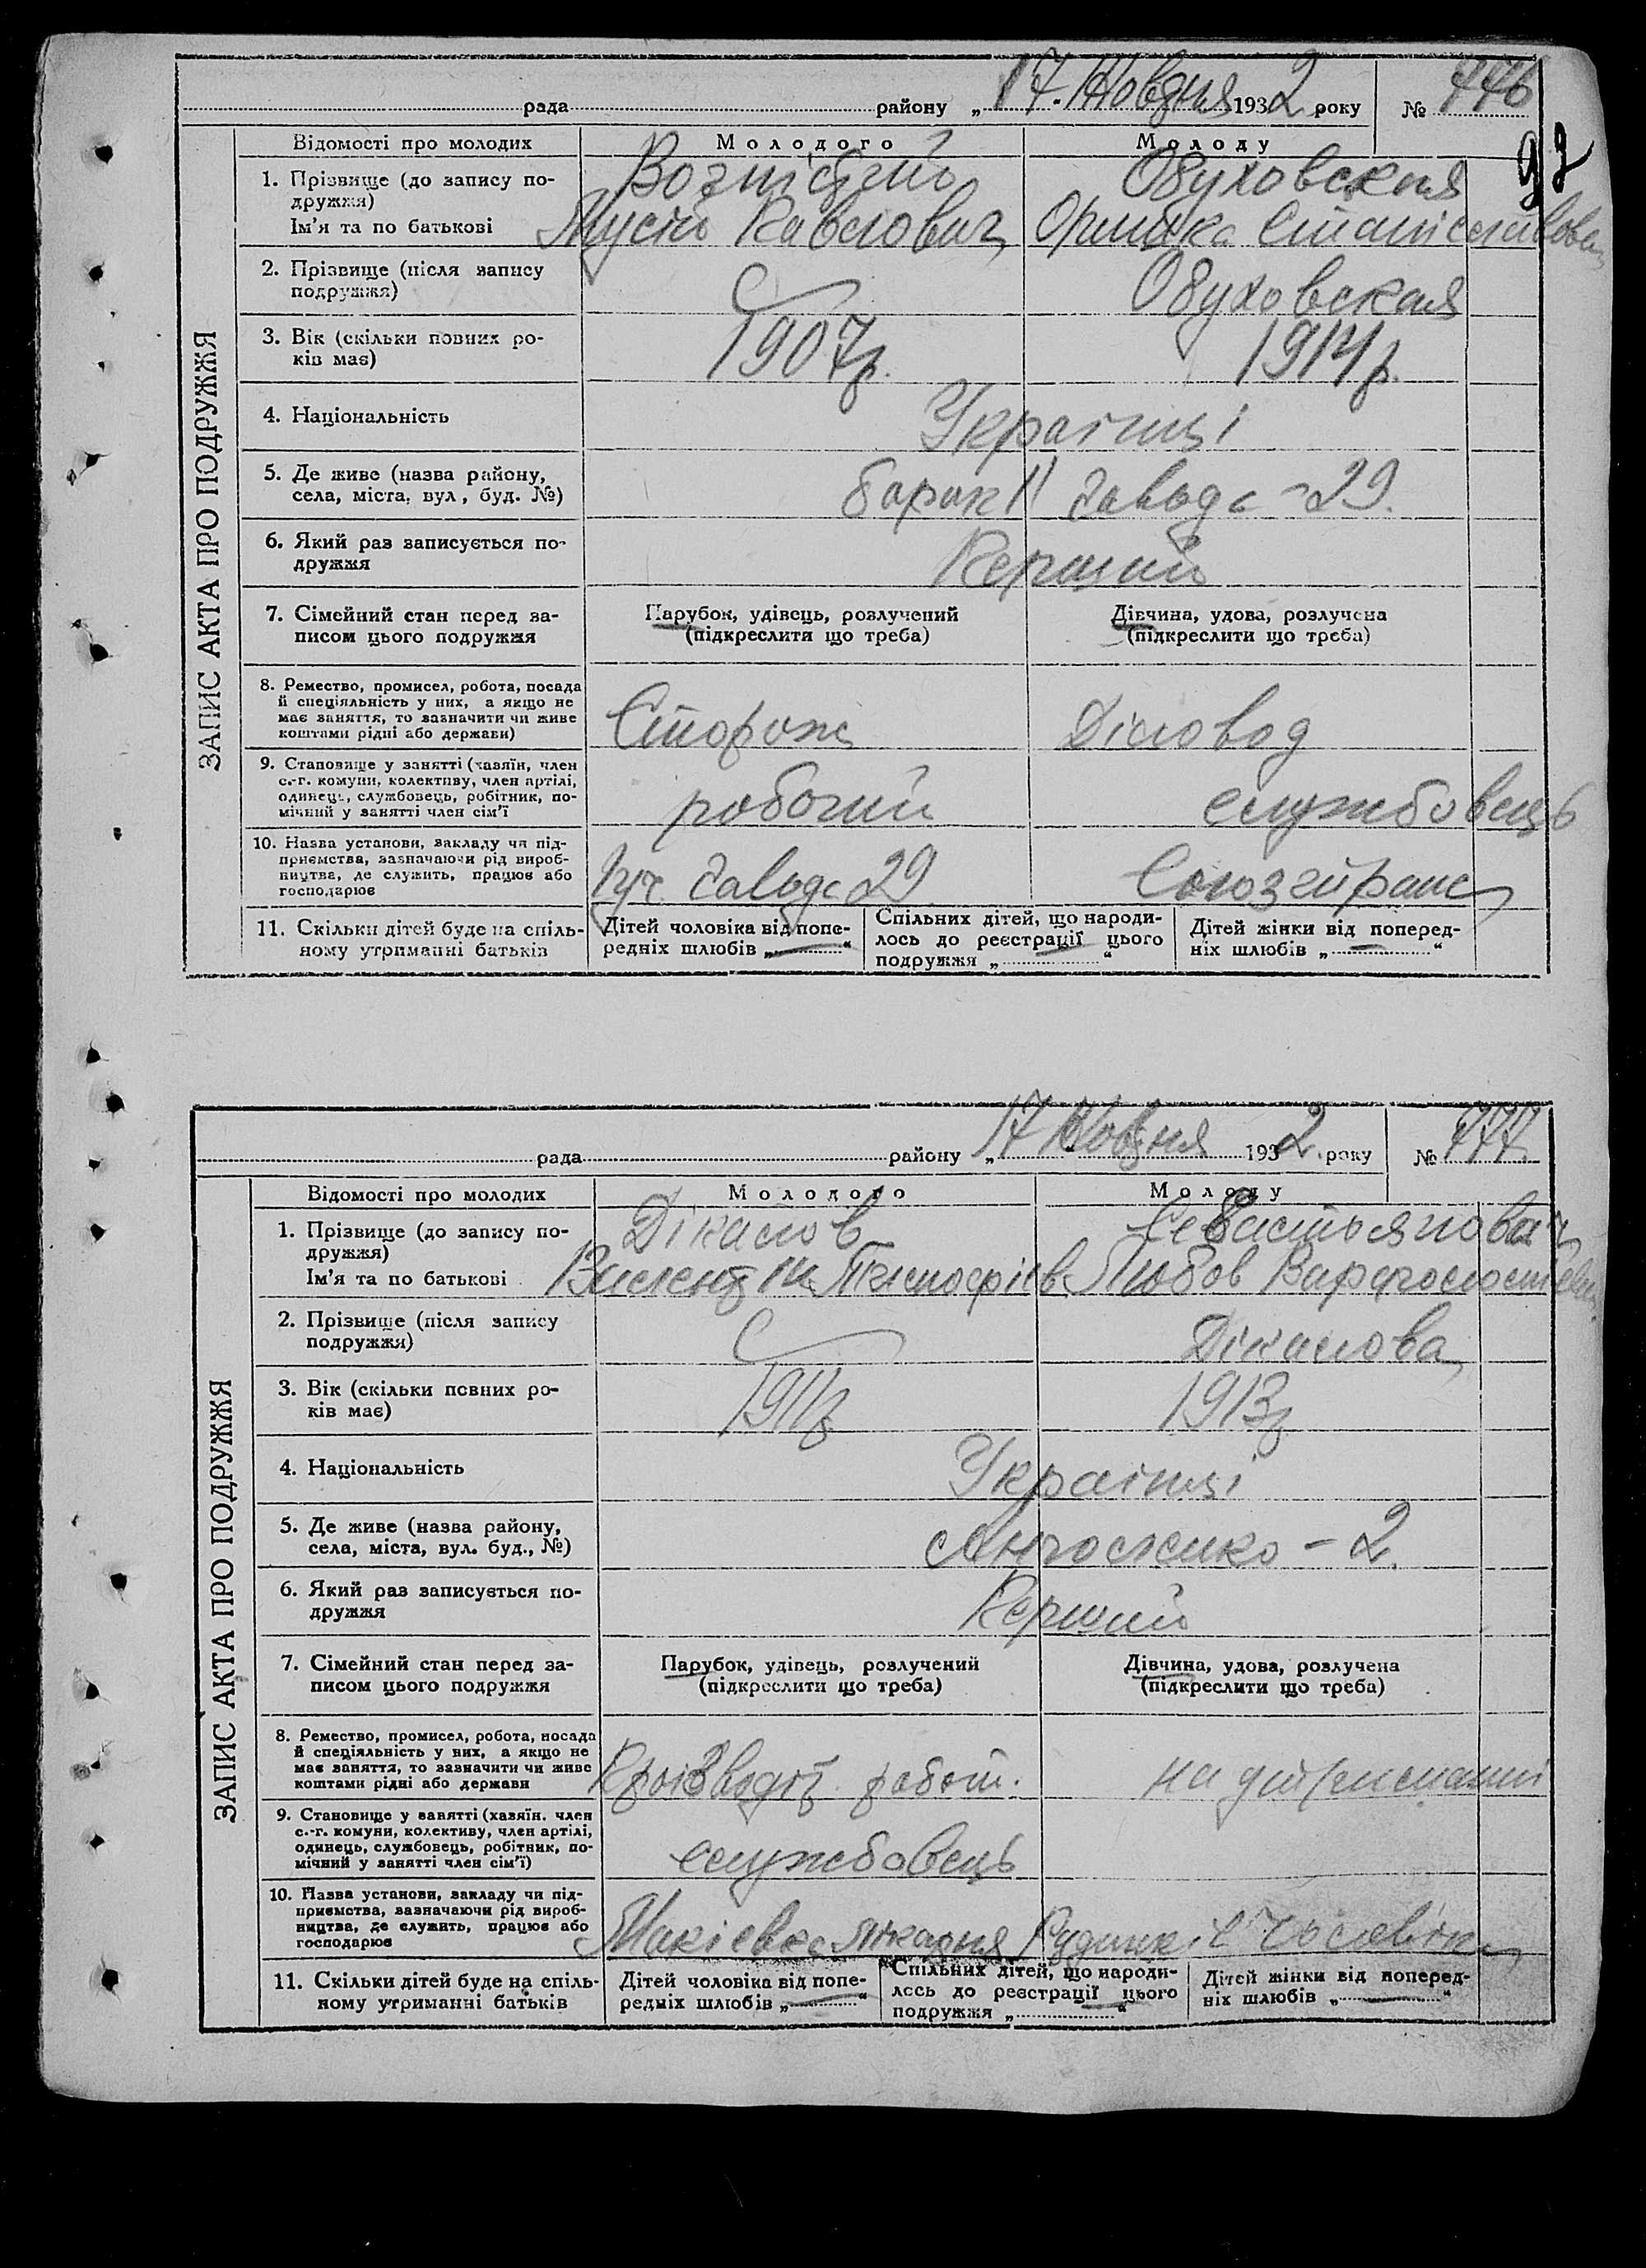 рада району „17. Жовдня 1932 року № 776
92
Відомості про молодих Молодого Молоду
ЗАПИС АКТА ПРО ПОДРУЖЖЯ
1. Прізвище (до запису по-
дружжя)
Ім'я та по батькові
Обуховская
Мусій Павлович
2. Прізвище (після запису
подружжя)
Обуховская
3. Вік (скільки повних ро-
ків має)
1907р. 1914р.
4. Національність
Українці
5. Де живе (назва району,
села, міста, вул, буд. №)
барак 11 завода - 29.
6. Який раз записується по-
дружжя
Перший
7. Сімейний стан перед за-
писом цього подружжя
Парубок, удівець, розлучений
(підкреслити що треба)
Дівчина, удова, розлучена
(підкреслити що треба)
8. Ремество, промисел, робота, посада
й спеціяльність у них, а якщо не
має заняття, то зазначити чи живе
коштами рідні або держави)
Сторож Діловод
9. Становище у занятті (хазяїн, член
с.-г. комуни, колективу, член артілі,
одинець, службовець, робітник, по-
мічний у занятті член сім'ї
робочий службовець
10. Назва установи, закладу чи під-
приємства, зазначаючи рід вироб-
ництва, де служить, працює або
господарює
завода 29 Союзтранс
11. Скільки дітей буде на спіль-
ному утриманні батьків
Дітей чоловіка від попе-
редніх шлюбів „—“
Спільних дітей, що народи-
лось до реєстрації цього
подружжя „—“
Дітей жінки від поперед-
ніх шлюбів „—“
рада району „17 Жовдня 1932 року № 777
Відомості про молодих Молодого Молоду
ЗАПИС АКТА ПРО ПОДРУЖЖЯ
1. Прізвище (до запису по-
дружжя)
Ім'я та по батькові
Дікалов Севастьянова
Любов
2. Прізвище (після запису
подружжя)
Дікалова
3. Вік (скільки повних ро-
ків має)
1911р 1913р
4. Національність
Українці
5. Де живе (назва району,
села, міста, вул. буд., №)
- 2.
6. Який раз записується по-
дружжя
Перший
7. Сімейний стан перед за-
писом цього подружжя
Парубок, удівець, розлучений
(підкреслити що треба)
Дівчина, удова, розлучена
(підкреслити що треба)
8. Ремество, промисел, робота, посада
й спеціяльність у них, а якщо не
має заняття, то зазначити чи живе
коштами рідні або держави
робот. на утриманні
9. Становище у занятті (хазяїн. член
с.-г. комуни, колективу, член артілі,
одинець, службовець, робітник, по-
мічний у занятті член сім'ї)
службовець
10. Назва установи, закладу чи під-
приємства, зазначаючи рід вироб-
ництва, де служить, працює або
господарює
Макіевка
11. Скільки дітей буде на спіль-
ному утриманні батьків
Дітей чоловіка від попе-
редніх шлюбів „—“
Спільних дітей, що народи-
лось до реєстрації цього
подружжя „—“
Дітей жінки від поперед-
ніх шлюбів „—“